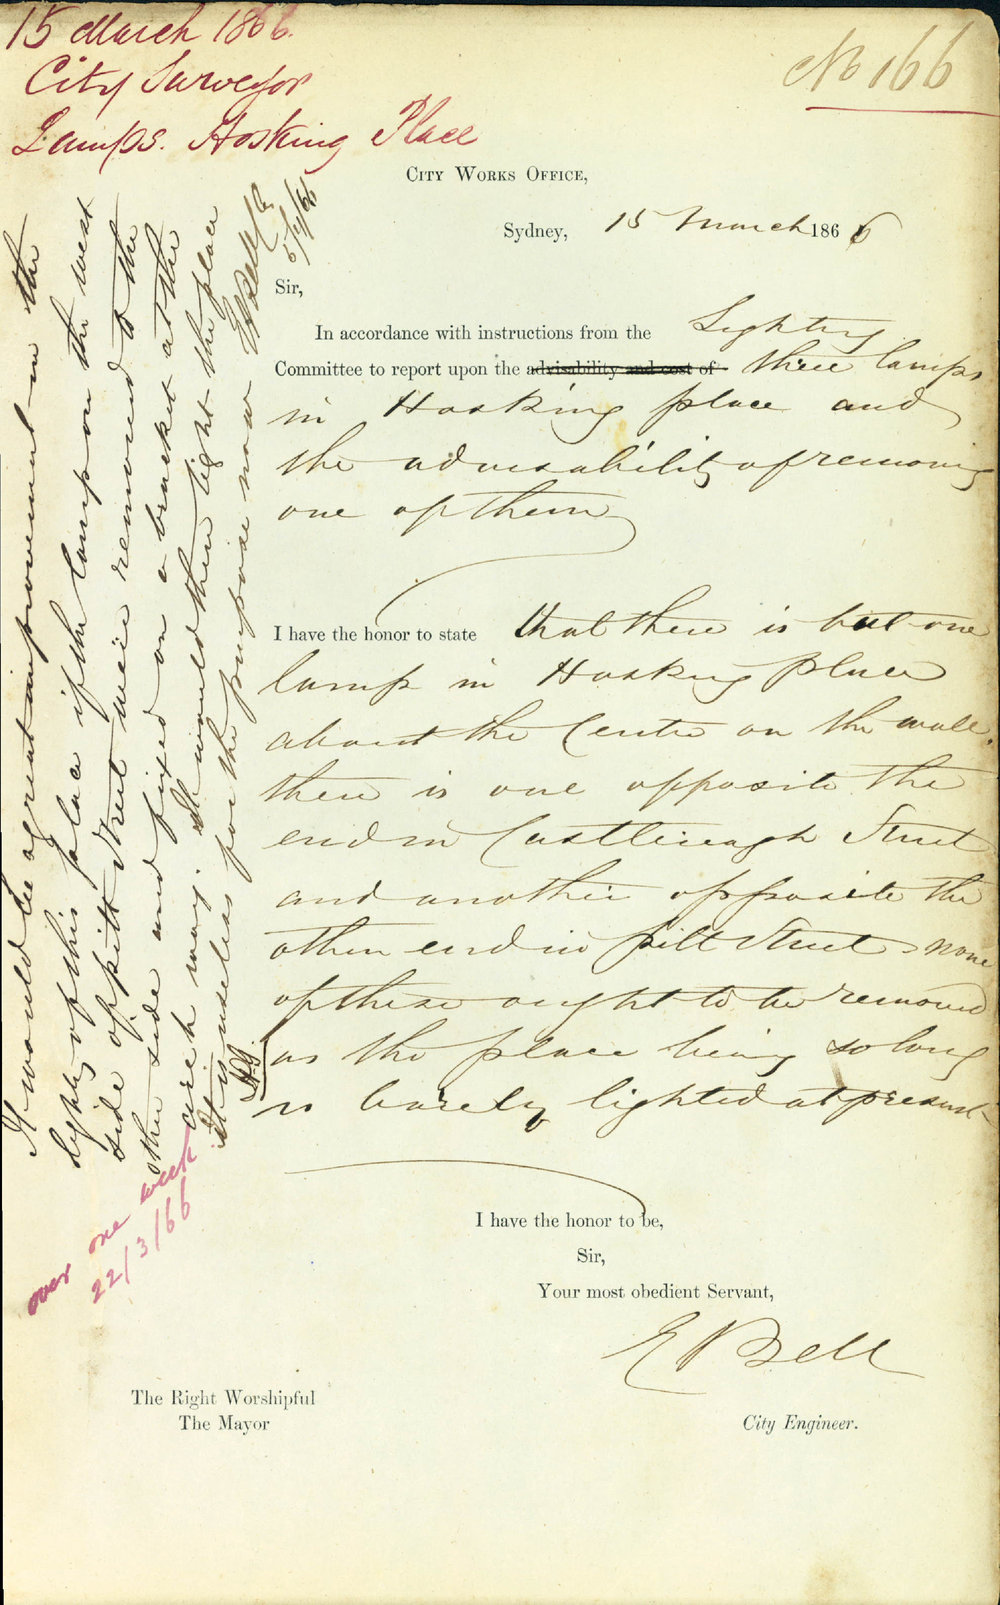 15 March 1866.
City Surveyor
Lamps. Hosking Place
No 166
City Works Office,
Sydney, 15 March 1866
Sir,
In accordance with instructions from the Lighting
Committee to report upon the advisability and cost of three lamps
in Hosking place and
the advisability of removing
one of them
I have the honor to state that there is but one
lamp in Hosking place
about the Centre on the wall.
there is one opposite the
end in Castlereagh Street
and another opposite the
other end in pitt Street none
of these ought to be removed
as the place being so long
is barely lighted at present
I have the honor to be,
Sir,
Your most obedient Servant,
E Bell
City Engineer.
The Right Worshipful
The Mayor
It would be a great improvement in the
lighting of this place if the lamp on the west
side of pitt Street were removed to the
other side and fixed on a bracket at the
arch way. It would then light the place
It is useless for the purpose now
E Bell C E
5/4/66
over one week
22/3/66